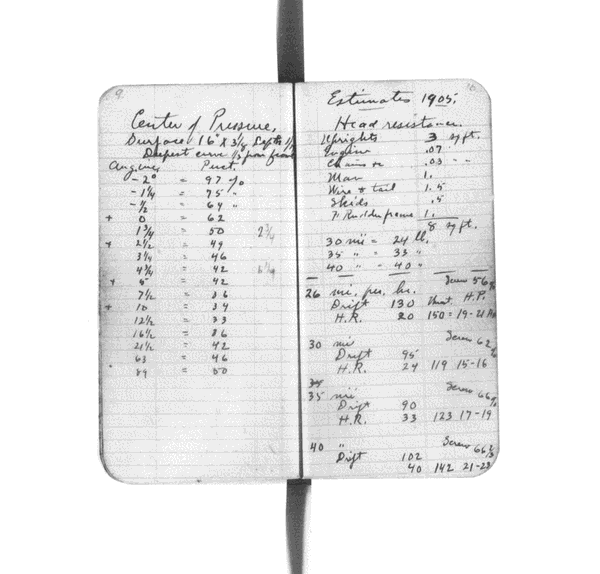 9.
Center of Pressure.
Surface 16" x 3 1/4 Depth
Deepest curve 1/3 from front
Angle Pcnt.
-2° = 97 %
-1 1/4 = 75 "
-1/2 = 64 "
+ 0 = 62
1 3/4 = 50 2 3/4
+ 2 1/2 = 49
3 1/4 = 46
4 3/4 = 42
+ 5 = 42
7 1/2 = 36
+ 10 = 34
12 1/2 = 33
16 1/2 = 36
21 1/2 = 42
63 = 46
89 = 50
10.
Estimates 1905.
Head resistance.
Uprights 3 sq ft.
Engine .07
Chains &c .03 " "
Man 1.
Wire & tail 1.5
Skids .5
F. Rudder frame 1.
8 sq ft.
30 mi = 24 lb.
35 " = 33 "
40 " = 40 "
26 mi. per. hr. Screw 56
Drift 130 H.P.
H.R. 20 150 = 19-21
30 mi Screw 62
Drift 95
H.R. 24 119 15-16
35 mi. Screw 66
Drift 90
H.R. 33 123 17-19
40 " Screw 66
Drift 102
40 142 21-23